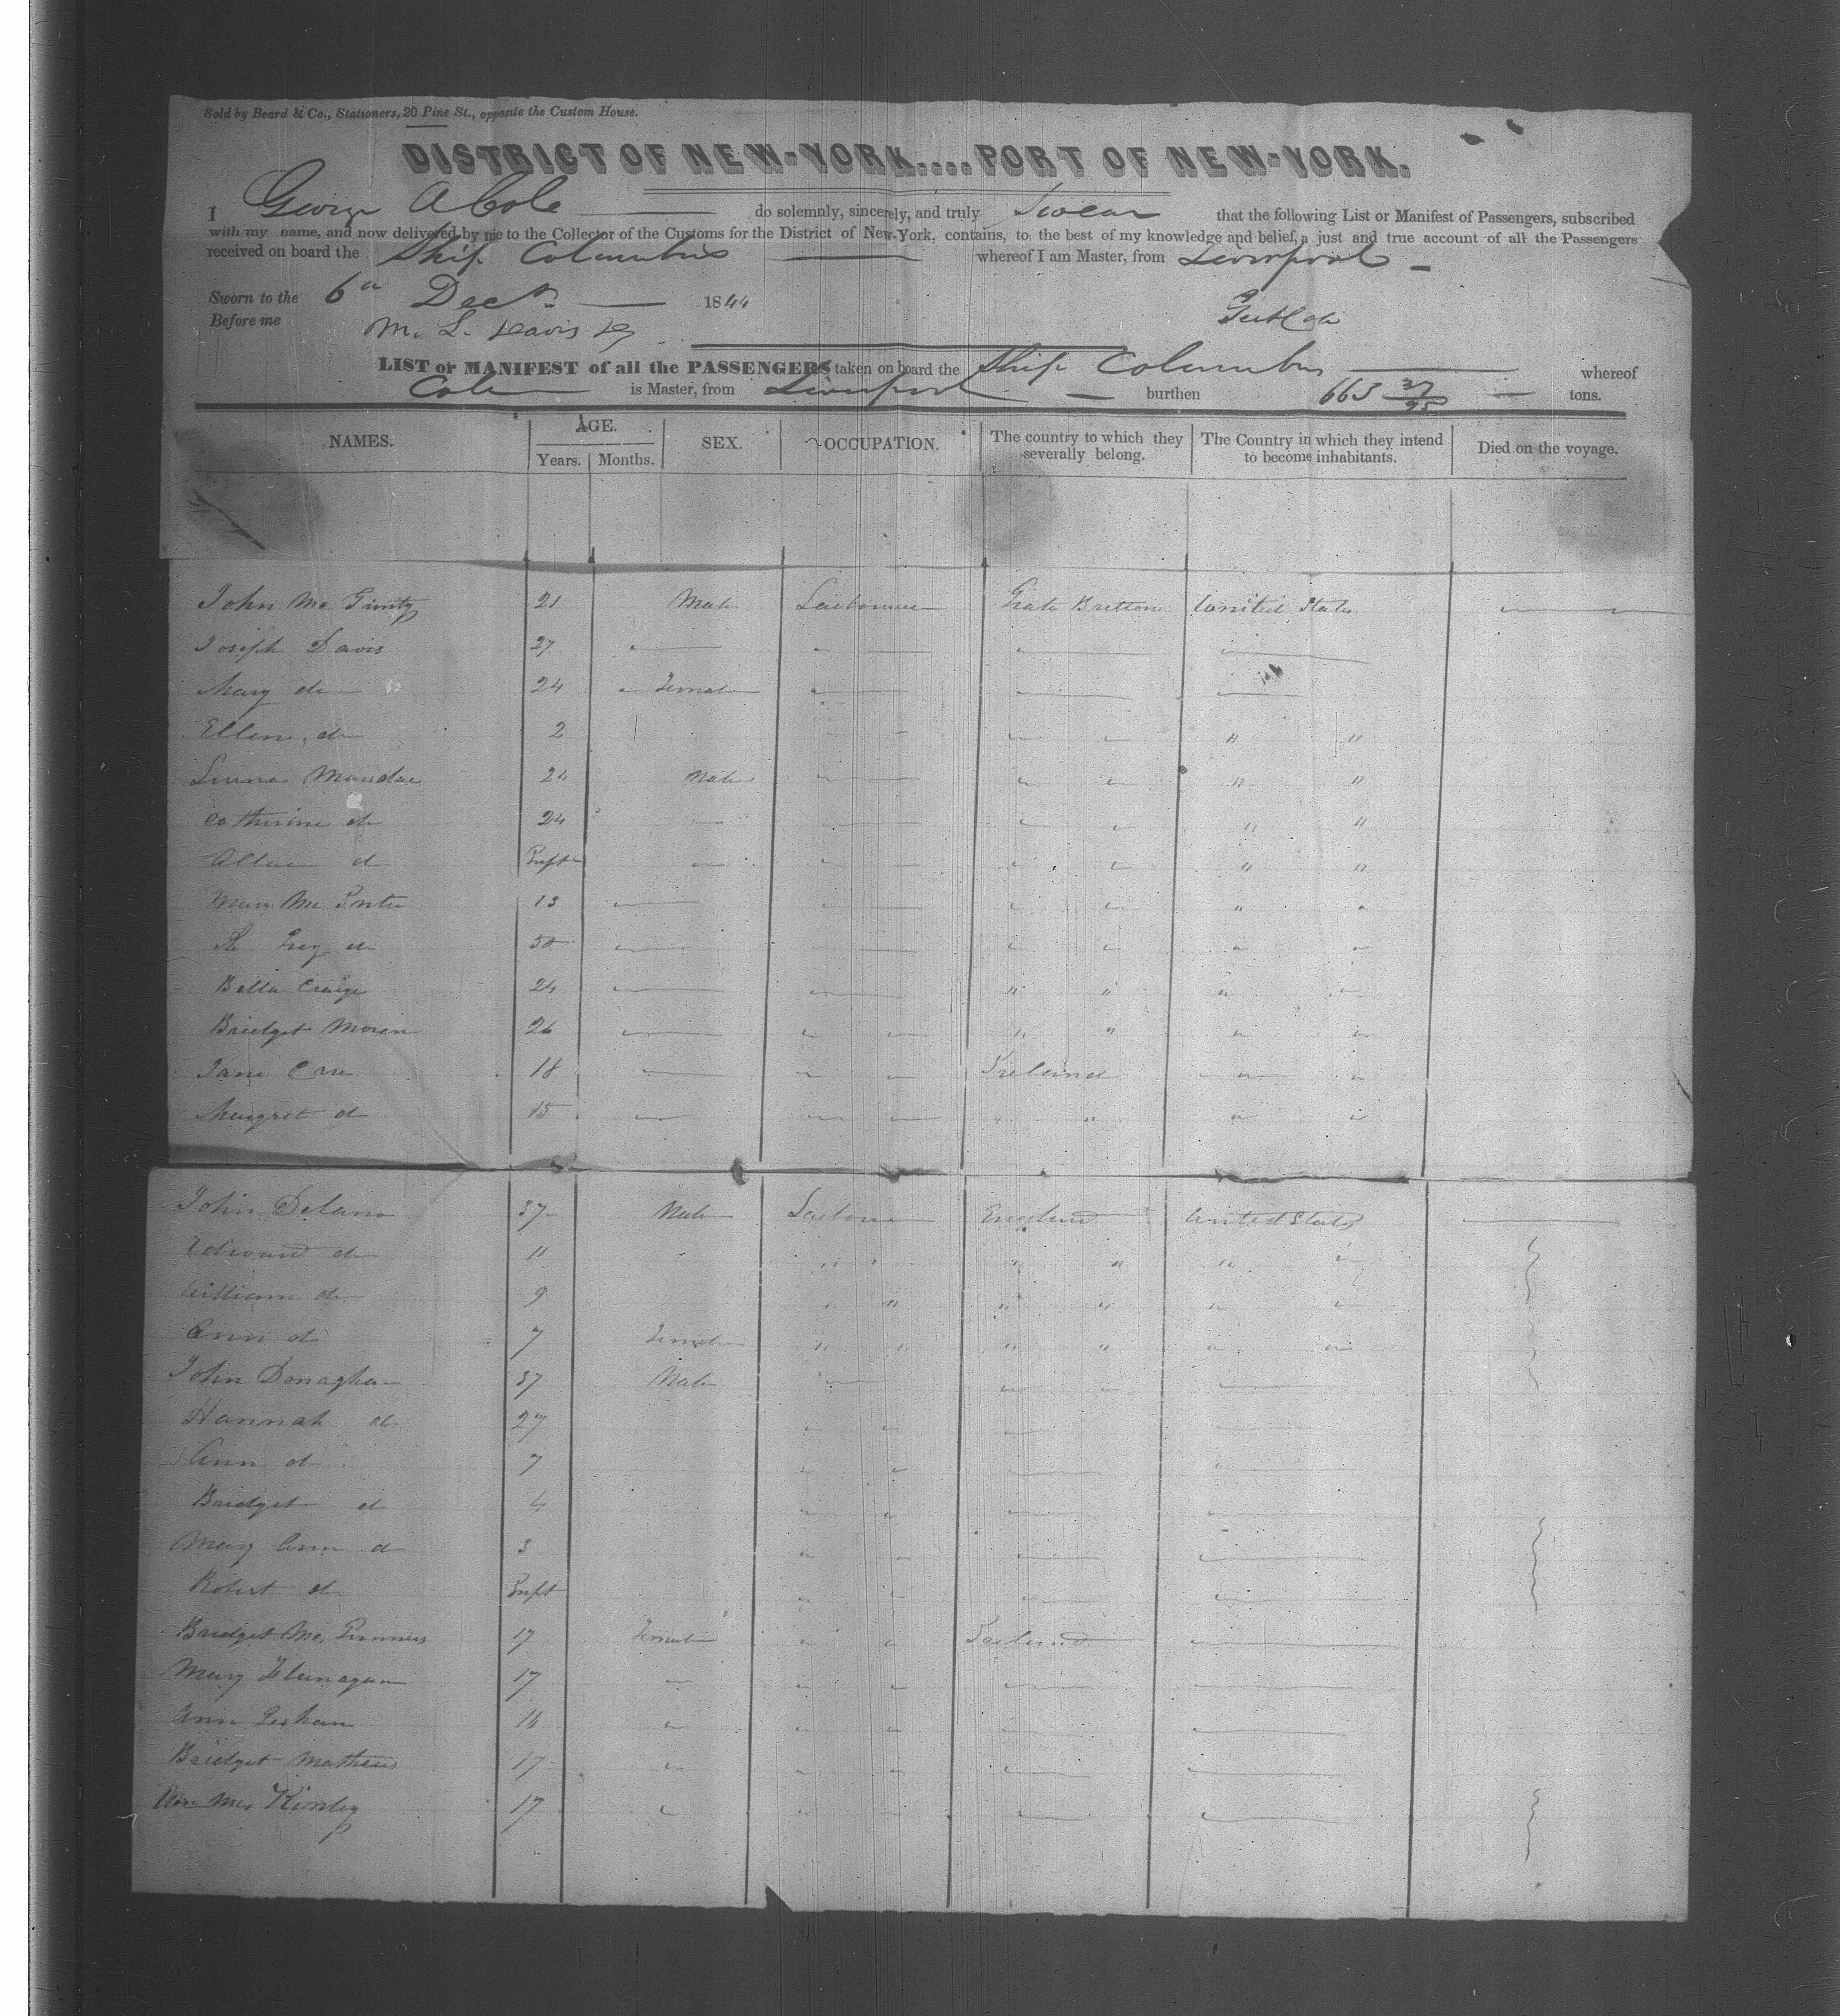 Sold by Beard & Co., Stationers, 20 Pine St., opposite the Custom House.
DISTRICT OF NEW-YORK....PORT OF NEW-YORK.
I George A Cole do solemnly, sincerely, and truly Swear that the following List or Manifest of Passengers, subscribed
with my name, and now delivered by me to the Collector of the Customs for the District of New-York, contains, to the best of my knowledge and belief, a just and true account of all the Passengers
received on board the Ship Columbus whereof I am Master, from Liverpool
Sworn to the 6th Decr 1844
Before me M. L. Davis
LIST or MANIFEST of all the PASSENGERS taken on board the Ship Columbus whereof
Cole is Master, from Liverpool burthen 663 37/95 tons.
NAMES. AGE. SEX. OCCUPATION. The country to which they severally belong. The Country in which they intend to become inhabitants. Died on the voyage.
Years. Months.
John Mc Ginity 21 Male Great Britton United States
Joseph Davis 27
Mary do 24 Female
Ellen do 2
24 Male
Catherine do 24
do Inft
Mary Mc 13
do
Bella Craige 24
Bridget Moren 26
Jane 18 Ireland
Margret do 15
John Delano 37 Male England United States
Edward do 11 " " "
William do 9 " " " "
Ann do 7 Female " " " "
John Donaghan 37 Male
Hannah do 27
Ann do 7
Bridget do 4
Mary Ann do 3
Robert do Inft
Bridget Mc 17 Female Ireland
Mary Flanagan 17
Ann 16
Bridget Mathews 17
Ann Mc Kinley 17